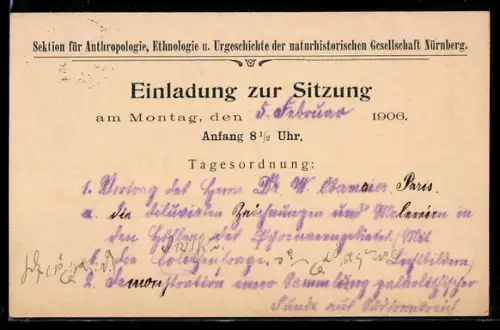 Sektion für Anthropologie, Ethnologie u. Urgeschichte der naturhistorischen Gesellschaft Nürnberg.
Einladung zur Sitzung
am Montag, den 5. Februar 1906.
Anfang 8 1/2 Uhr.
Tagesordnung:
1. Vortrag des Herrn Dr. W. Obermaier, Paris.
a. die diluvialen Zeichnungen und Malereien in
den Höhlen des (Mit
b. die Lichtbildern)
2. Demonstration einer Sammlung paläolithischer
Funde aus Südfrankreich